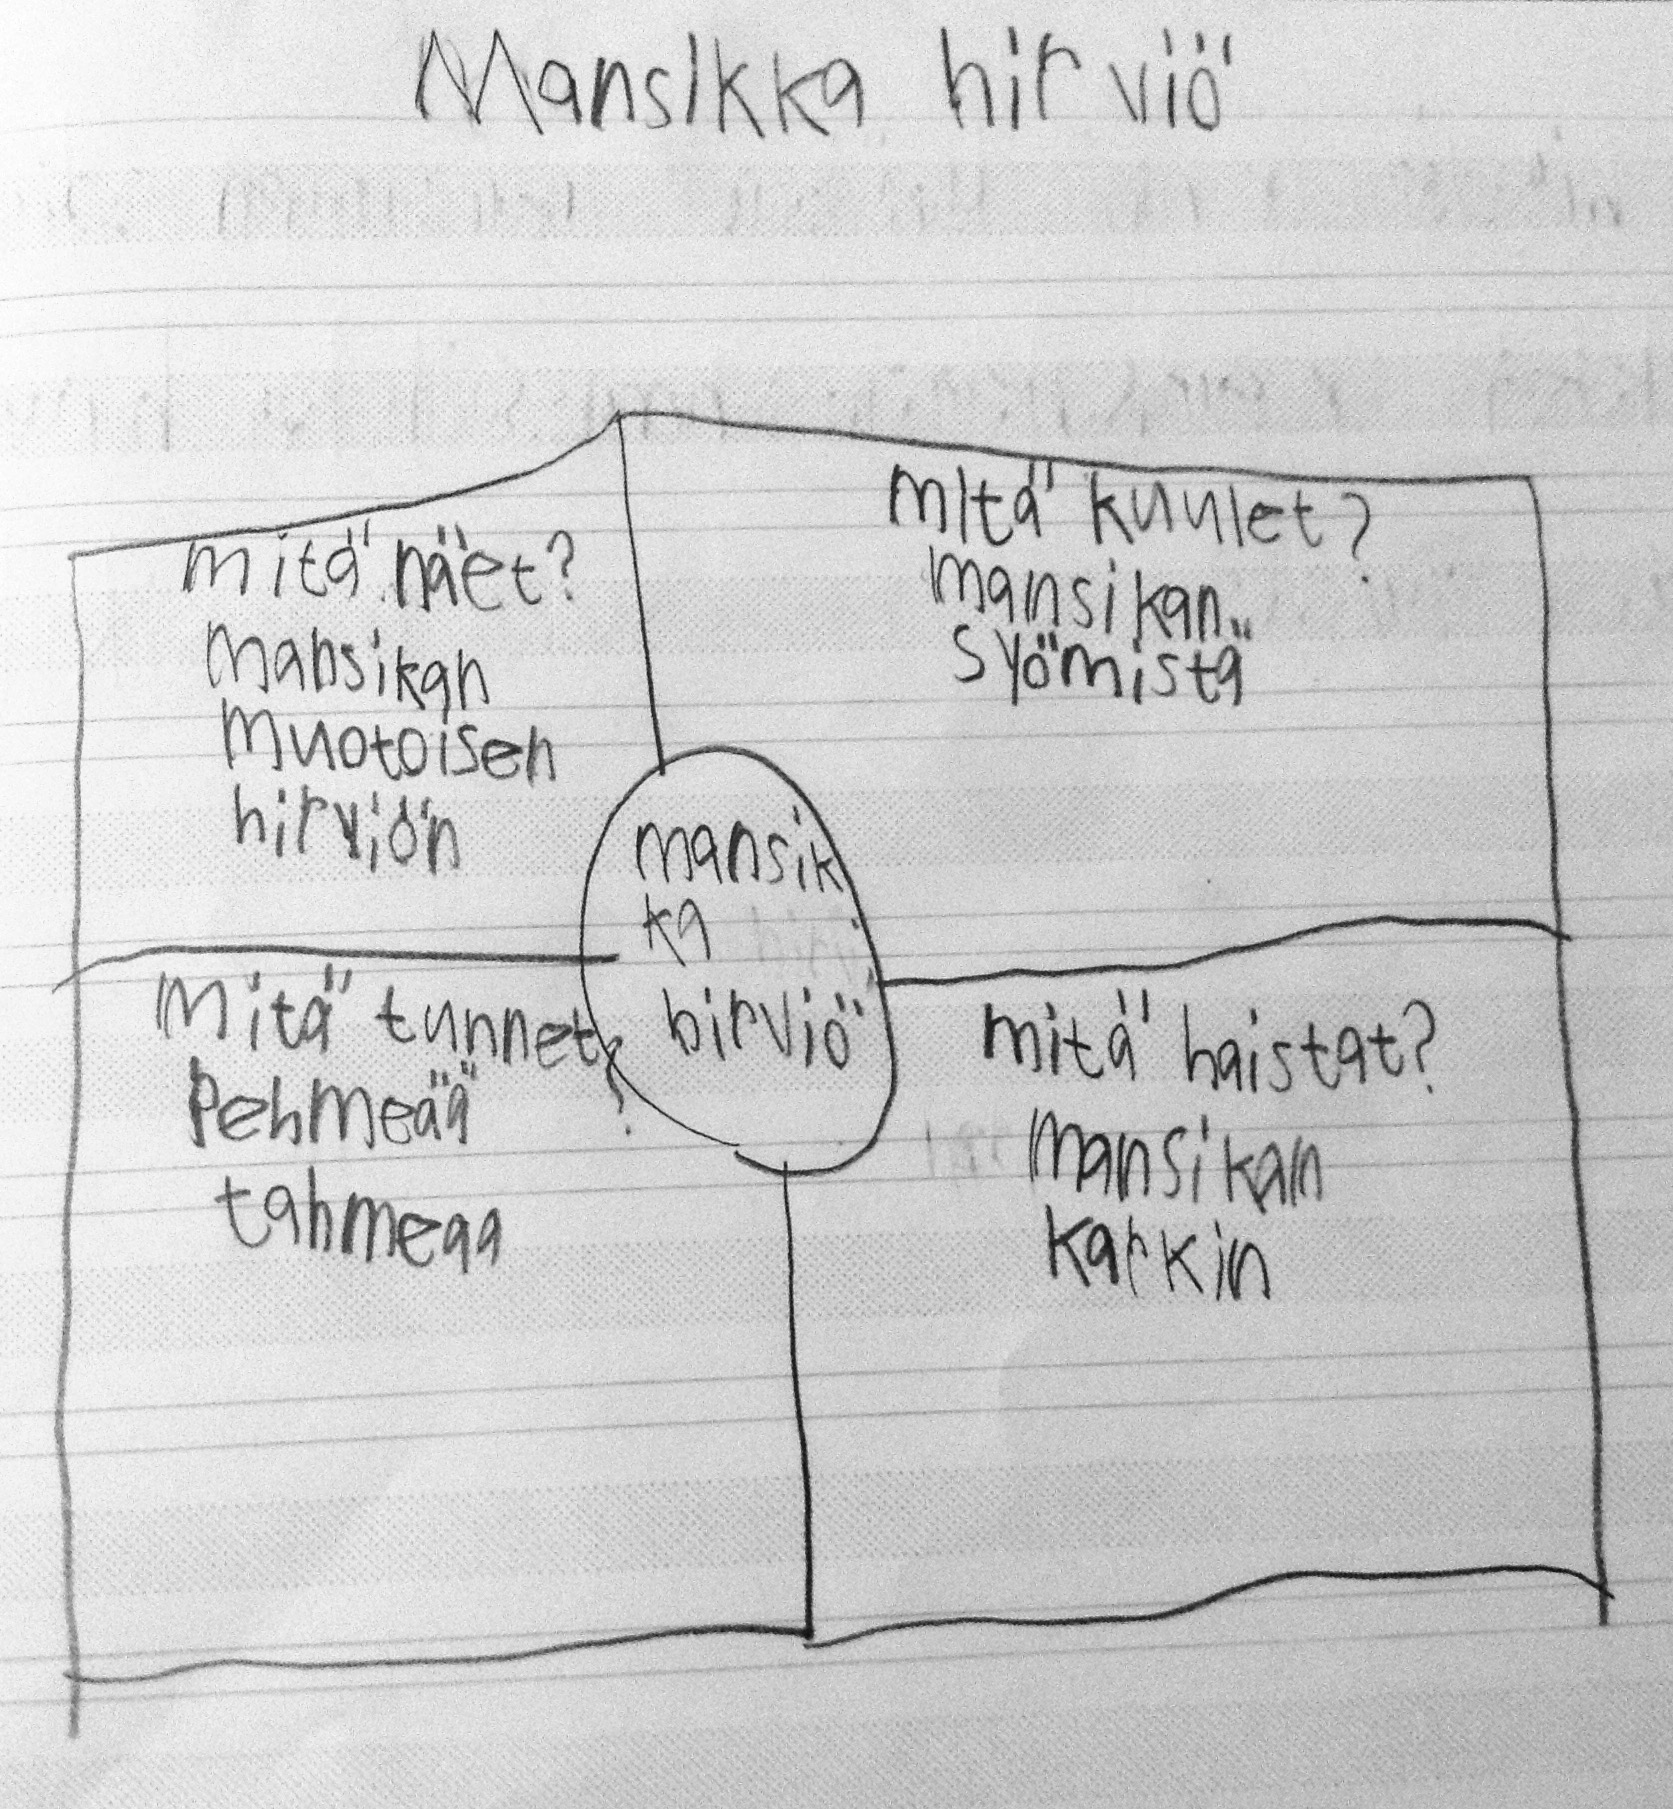 Mansikka hirviö
mitä näet?
mansikan
muotoisen
hirviön
mitä kuulet?
mansikan
syömistä
mansik
ka
hirviö
mitä tunnet?
Pehmeää
tahmeaa
mitä haistat?
mansikan
karkin